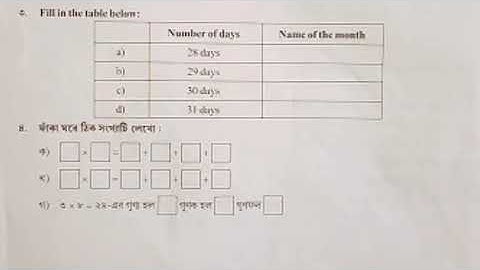 ৩. Fill in the table below:
Number of days Name of the month
a) 28 days
b) 29 days
c) 30 days
d) 31 days
৪. ফাঁকা ঘরে ঠিক সংখ্যাটি লেখো :
ক) × = + + +
খ) × = + + +
গ) ৩ × ৮ = ২৪-এর গুণ্য হল গুণক হল গুণফল